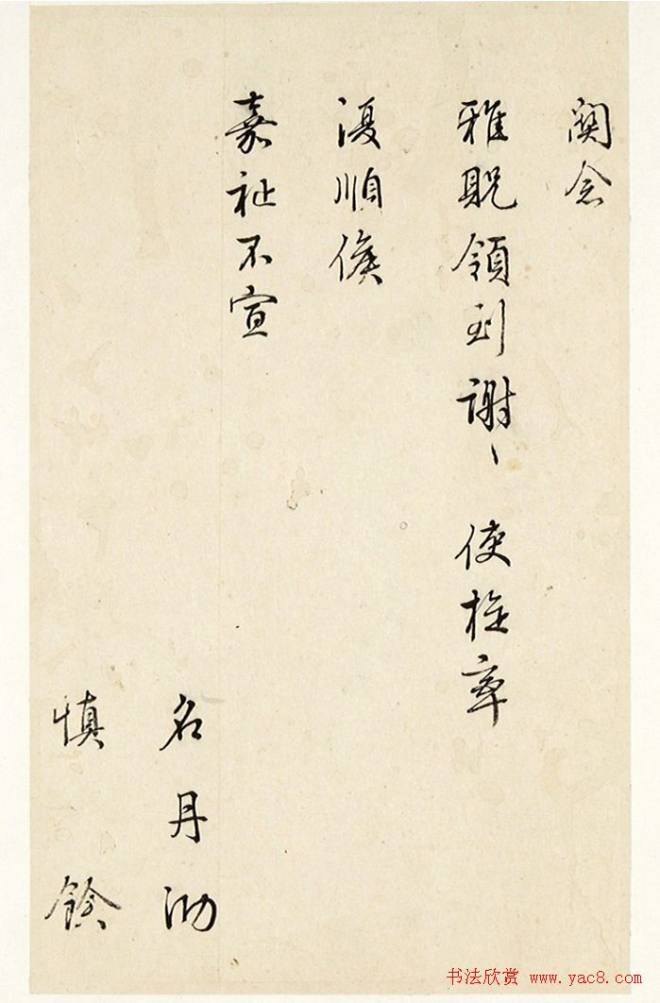 関念
雅貺領到謝〻使旋率
復順候
嘉祉不宣
名丹泐
慎餘
书法欣赏 www.yac8.com